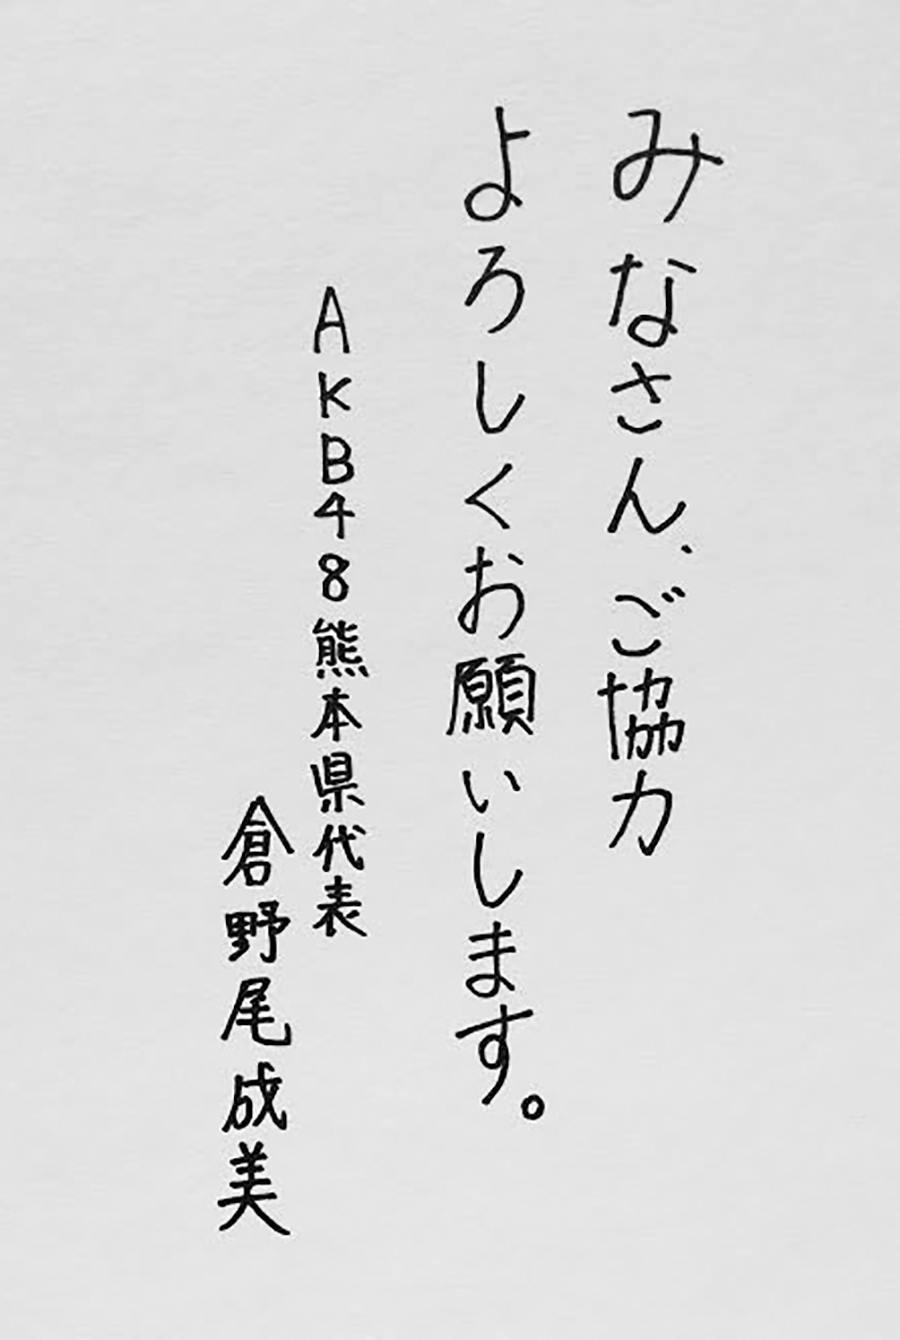 みなさん、ご協力
よろしくお願いします。
AKB48熊本県代表
倉野尾成美